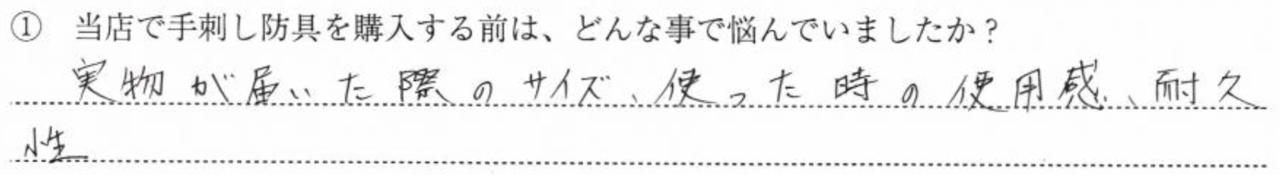 ① 当店で手刺し防具を購入する前は、どんな事で悩んでいましたか？
実物が届いた際のサイズ、使った時の使用感、耐久
性